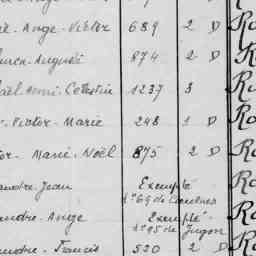 Ange-Victor 689 2 D Ro
Auguste 874 2 D R
Henri-Célestin 1237 3 Ro
Victor-Marie 248 1 D Ro
Marie Noël 875 2 D Ro
andre Jean Exempté Ro
nº 69 de
andre-Ange Exempté Ro
nº 95 de Jugon
andre-Francis 520 2 D Ro